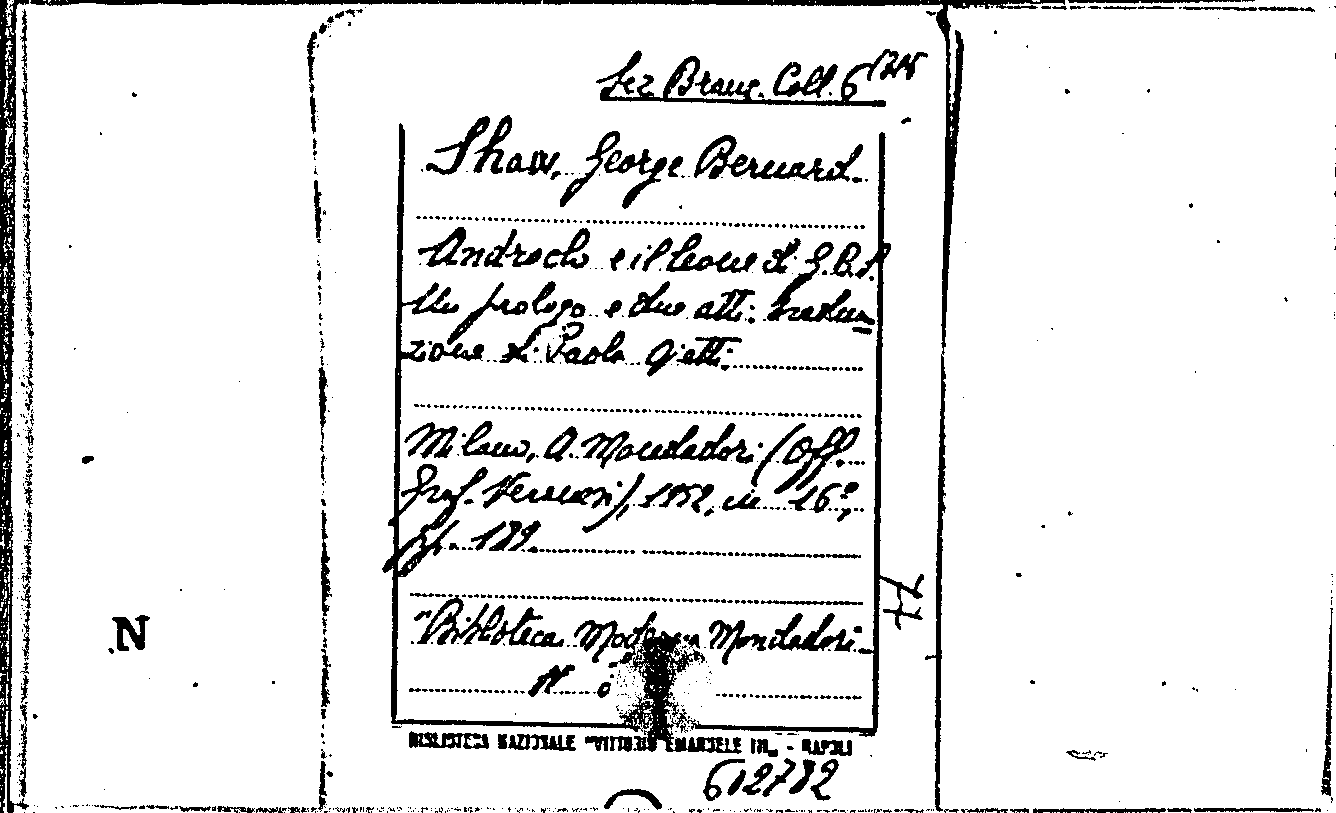 Sez Branc. Coll. 6
Shaw, George Bernard.
Androclo e il leone di G.B.S.
Un prologo e due atti. Tradu=
zione di Paola Ojetti.
Milano, A. Mondadori (Off.
Graf. Veronesi), 1952, in 16°,
pp. 189.
"Biblioteca Moderna Mondadori
N
N
BIBLIOTECA NAZIONALE "VITTORIO EMANUELE III„ - NAPOLI
612782